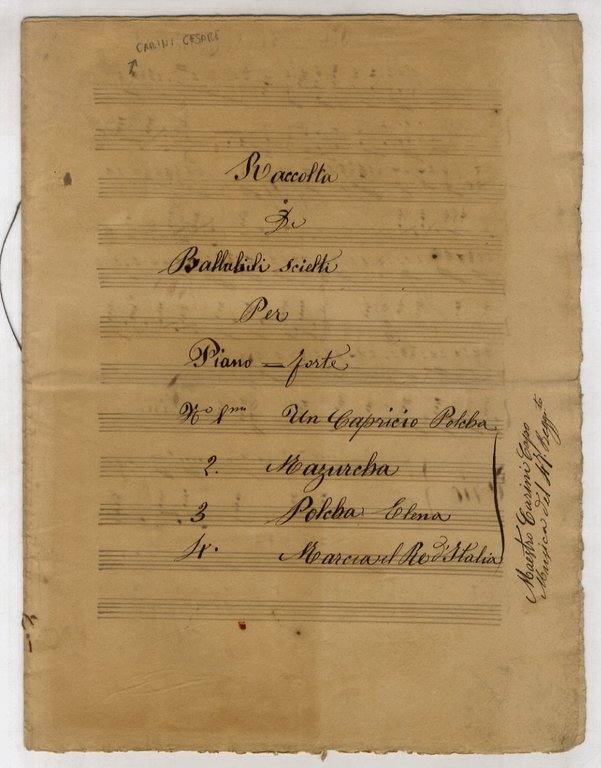 CARINI CESARE
Raccolta
Di
Ballabili scielti
Per
Piano = forte
Nº 1mo Un Capricio Polcba
2. Mazurcba
3 Polcba Elena
4. Marcia il Re d'Italia
Maestro Carini Capo
Musica del 47 Reggto